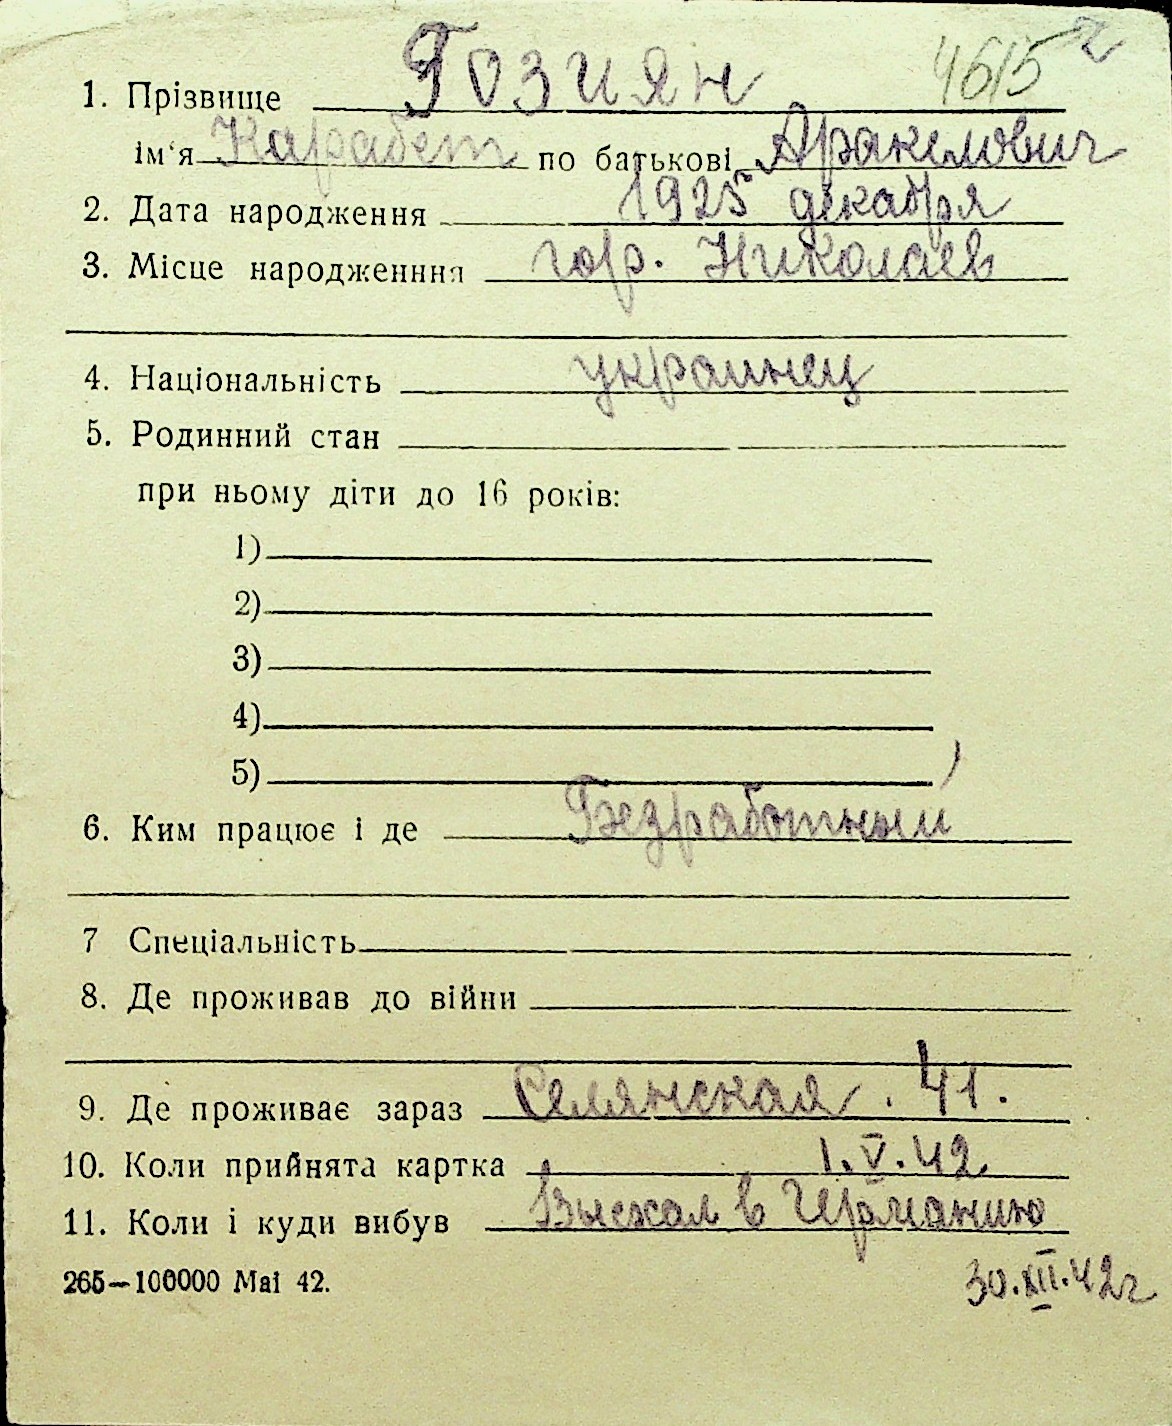 4615
1. Прізвище Гозиян
ім'я Карабет по батькові Аракелович
2. Дата народження 1925 декабря
3. Місце народженння гор. Николаев
4. Національність украинец
5. Родинний стан
при ньому діти до 16 років:
1)
2)
3)
4)
5)
6. Ким працює і де Безработный
7 Спеціальність
8. Де проживав до війни
9. Де проживає зараз Селянская. 41.
10. Коли прийнята картка 1.V.42
11. Коли і куди вибув Выехал в Германию
265—100000 Mai 42. 30.XII.42г